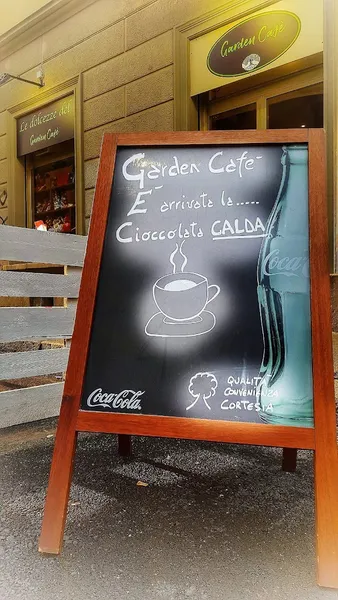 Garden Cafè
Le dolcezze del
Garden Cafè
Garden Cafè
E' arrivata la.....
Cioccolata CALDA
Coca-Cola
Coca-Cola
QUALITA'
CONVENIENZA
CORTESIA